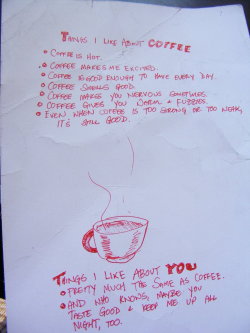 THINGS I LIKE ABOUT COFFEE
• COFFEE IS HOT.
• COFFEE MAKES ME EXCITED.
• COFFEE IS GOOD ENOUGH TO HAVE EVERY DAY.
• COFFEE SMELLS GOOD.
• COFFEE MAKES YOU NERVOUS SOMETIMES.
• COFFEE GIVES YOU WARM + FUZZIES.
• EVEN WHEN COFFEE IS TOO STRONG OR TOO WEAK,
IT'S STILL GOOD.
THINGS I LIKE ABOUT YOU
• PRETTY MUCH THE SAME AS COFFEE.
• AND WHO KNOWS, MAYBE YOU
TASTE GOOD & KEEP ME UP ALL
NIGHT, TOO.